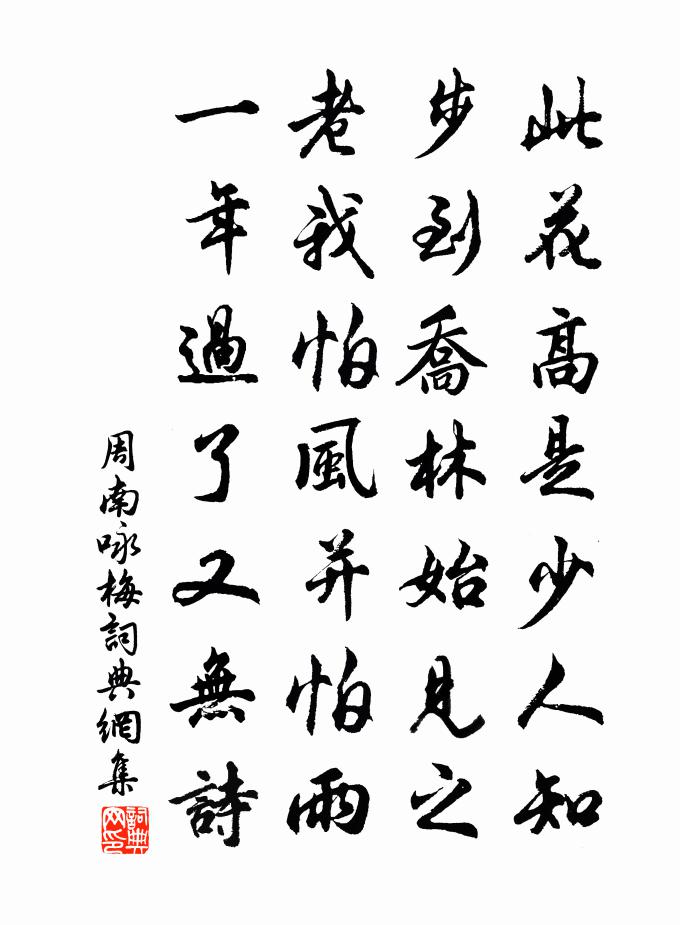 此花高是少人知
步到喬林始見之
老我怕風并怕雨
一年過了又無詩
周南咏梅詞典網集
詞典網印